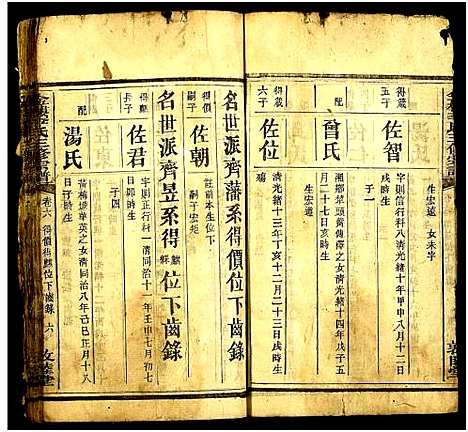 生宏遠 一女未字
得箴五子
佐智
字則信行科八清光緒十年甲申八月十二
日時生
配
曾氏
湘鄉
傳之女清光緒十四年戊子五
月二十七日亥時生
生宏道
得箴六子
佐位
清光緒十三年丁亥十二月二十三日戌時生
殤
名世派齊藩系得價位下齒錄
得價嗣子
佐朝
註前本生位下
嗣子宏
名世派齊昱系得麒麟位下齒錄
佐君
字則正行科一清同治十一年壬申七月初七
日卯時生
子四
配
湯氏
清同治八年己巳正月十八
日子時生
卷六
得價得麒位下齒錄
六
敦睦堂